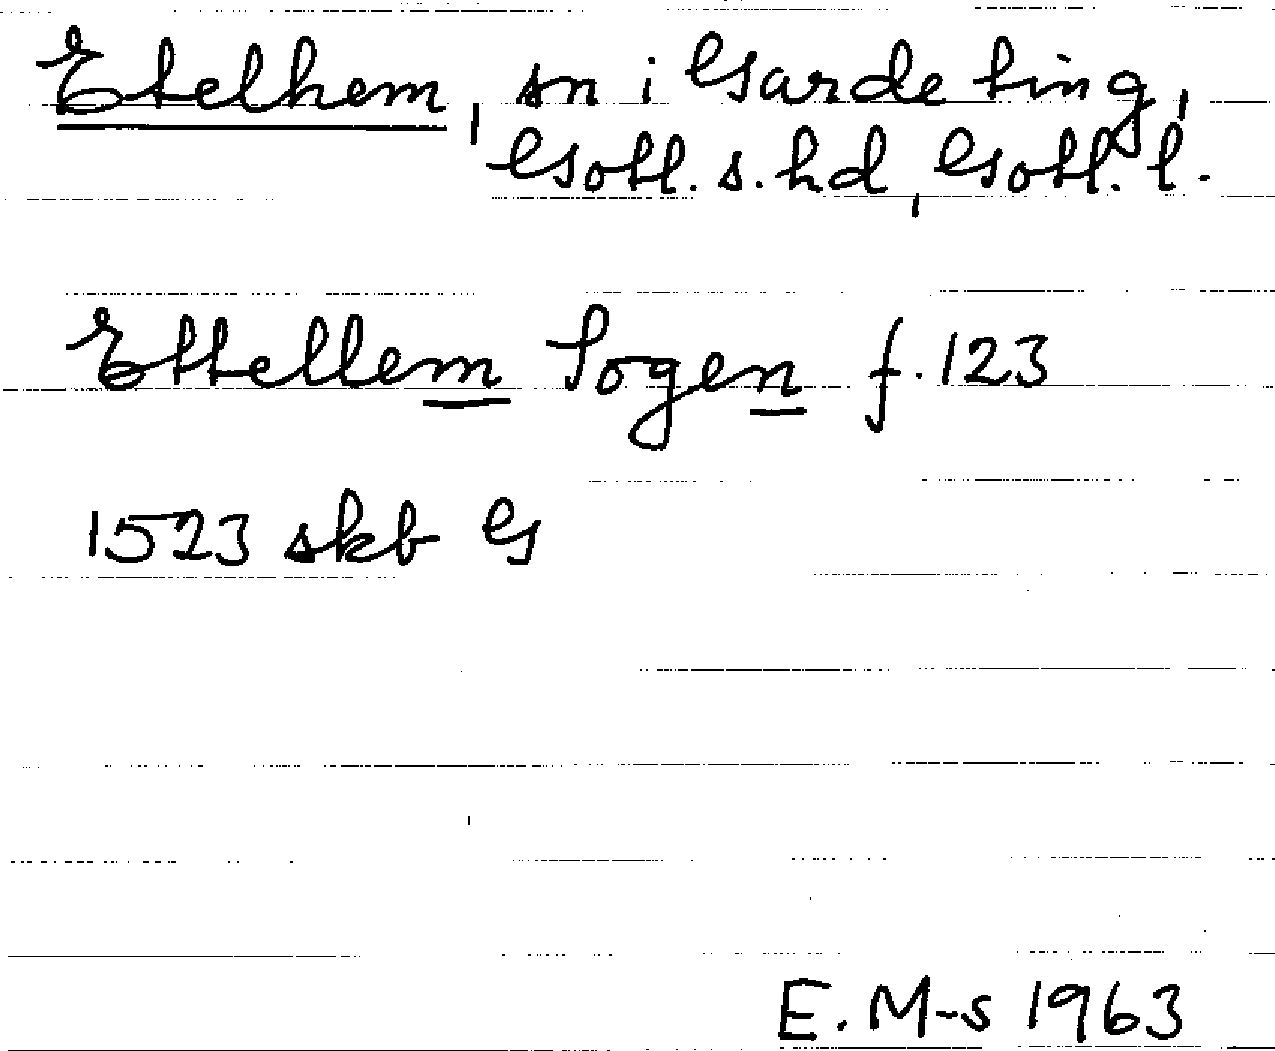 Etelhem, sn i Garde ting,
Gotl. s. hd, Gotl. l.
Ettellem Sogen f. 123
1523 skb G
E. M-s 1963